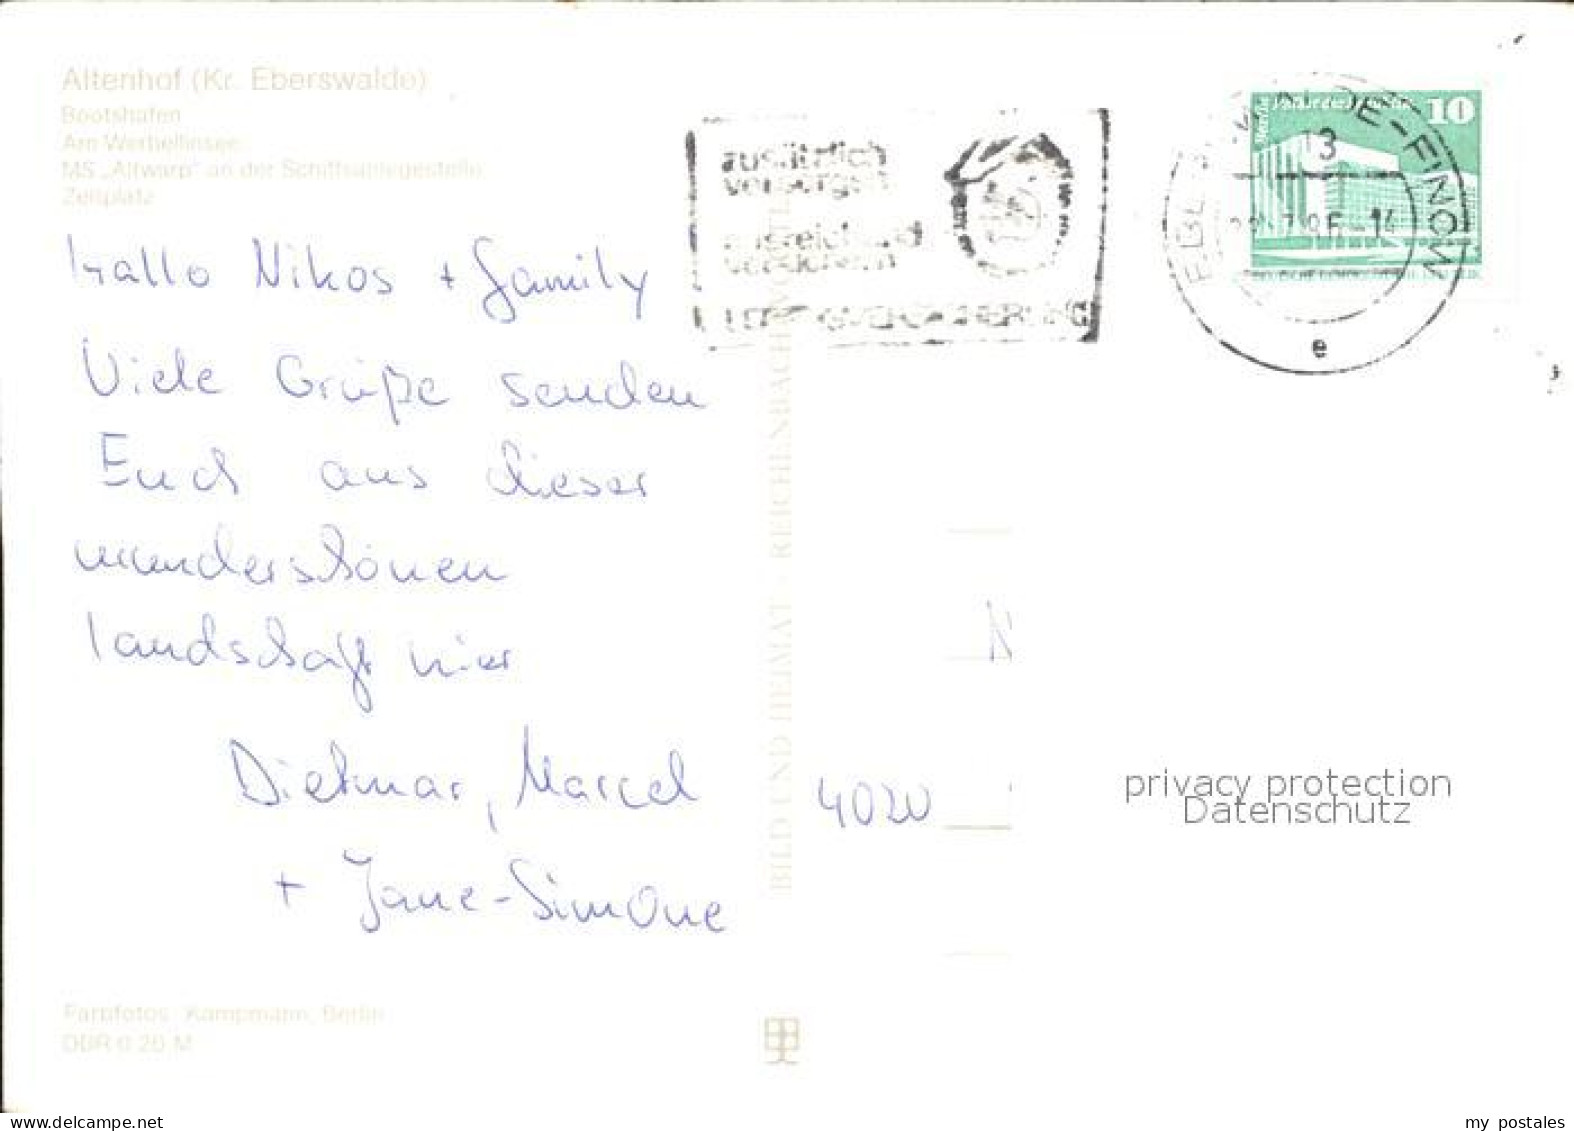 Altenhof (Kr. Eberswalde)
Bootshafen
Am Werbellinsee
MS „Altwarp" an der Schiffsanlegestelle
Zeltplatz
Hallo Nikos + Family
Viele Grüße senden
Euch aus dieser
wunderschönen
Landschaft hier
Dietmar, Marcel
+ Jane-Simone
Farbfotos: Kampmann, Berlin
DDR 0.20 M
BILD UND HEIMAT · REICHENBACH
zusätzlich
versorgt
ausreichend
versichern
10
EBERSWALDE-FINOW
13
7.86-14
e
N
4020
privacy protection
Datenschutz
www.delcampe.net
my postales